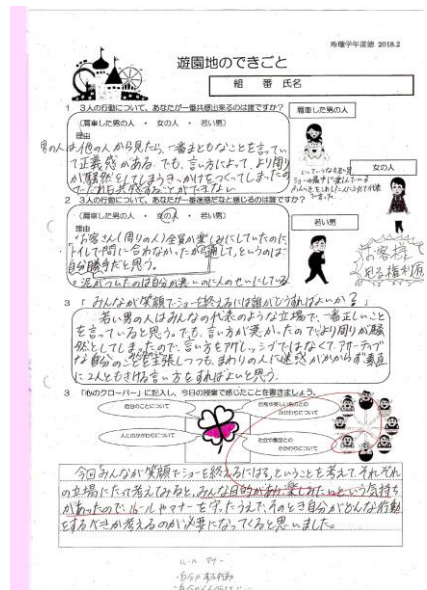 玲瓏学年道徳 2018.2
遊園地のできごと
組 番 氏名
1 3人の行動について、あなたが一番共感出来るのは誰ですか?
(肩車した男の人 ・ 女の人 ・ 若い男)
理由
男の人は他の人から見たら、一番まともなことを言っていて
正義感がある。でも、言い方によって、より周り
が騒然としてしまうきっかけをつくってしまったの
でだれも共感することができない
肩車した男の人
女の人
若い男
お客様
見る権利
2 3人の行動について、あなたが一番迷惑だなと感じるのは誰ですか?
(肩車した男の人 ・ 女の人 ・ 若い男)
理由
・お客さん(周りの人)全員が楽しみにしていたのに、
トイレで間に合わなかったが通して、というのは
自分勝手だと思う。
・泥がついたのは自分が悪いのに人のせいにしている
3 「みんなが笑顔でショーを終えるには誰がどうすればよいか?」
若い男の人はみんなの代表のような立場で、一番正しいこと
を言っていると思う。でも、言い方が悪かったのでより周りが騒
然としてしまったので、言い方をアグレッシブではなくて、アサーティブ
な自分のことを主張しつつも、まわりの人に迷惑がかからず素直
に2人ともきける言い方をすればよいと思う。
3 「心のクローバー」に記入し、今日の授業で感じたことを書きましょう。
自分のことについて
人とのかかわりについて
社会や集団との
かかわりについて
今回みんなが笑顔でショーを終えるには、ということを考えて、それぞれ
の立場にたって考えてみると、みんな目的があり、楽しみたいという気持ち
があったので、ルールやマナーを守ったうえで、そのとき自分がどんな行動
をするべきか考えるのが必要になってくると思いました。
ルール マナー